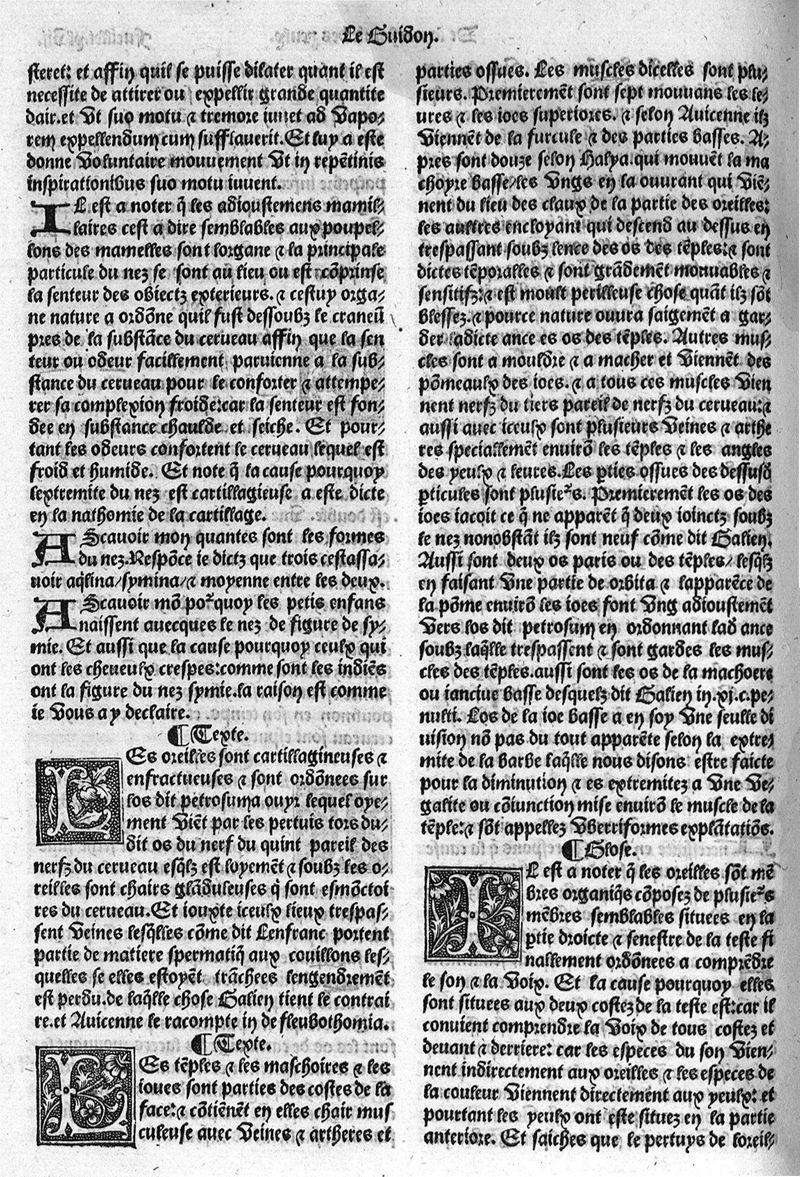 Le Guidon.
steret: et affin quil se puisse dilater quant il est
necessite de attirer ou expellir grande quantite
dair. et vt suo motu ⁊ tremore iuuet ad vapo-
rem expellendum cum sufflauerit. Et luy a este
donne voluntaire mouuement vt in repētinis
inspirationibus suo motu iuuent.
IL est a noter q̄ les adioustemens mamil-
laires cest a dire semblables aux poupel-
lons des mamelles sont lorgane ⁊ la principale
particule du nez se sont au lieu ou est cōprinse
la senteur des obiectz exterieurs. ⁊ cestuy orga-
ne nature a ordōne quil fust dessoubz le craneū
pres de la substāce du cerueau affin que la sen
teur ou odeur facillement paruienne a la sub-
stance du cerueau pour le conforter ⁊ attempe-
rer sa complexion froide: car la senteur est fon-
dee en substance chaulde et seiche. Et pour-
tant les odeurs confortent le cerueau lequel est
froid et humide. Et note q̄ la cause pourquoy
lextremite du nez est cartillagieuse a este dicte
en la nathomie de la cartillage.
AScauoir mon quantes sont les formes
du nez. Respōce ie dictz que trois cestassa-
uoir aq̄lina/symina/⁊ moyenne entre les deux.
AScauoir mō poᵘrquoy les petis enfans
naissent auecques le nez de figure de sy-
mie. Et aussi que la cause pourquoy ceulx qui
ont les cheueulx crespes: comme sont les indiēs
ont la figure du nez symie. la raison est comme
ie vous ay declaire.
¶ Texte.
LEs oreilles sont cartillagineuses ⁊
enfractueuses ⁊ sont ordōnees sur
los dit petrosum a ouyr lequel oye-
ment viēt par les pertuis tors du-
dit os du nerf du quint pareil des
nerfz du cerueau esq̄lz est loyemēt ⁊ soubz les o-
reilles sont chairs glāduleuses q̄ sont esmōctoi
res du cerueau. Et iouxte iceulx lieux trespas-
sent veines lesq̄lles cōme dit Lenfranc portent
partie de matiere spermatiq̄ aux couillons les-
quelles se elles estoyēt trāchees lengendremēt
est perdu. de laq̄lle chose Galien tient le contrai
re. et Auicenne le racompte in de fleubothomia.
¶ Texte.
LEs tēples ⁊ les maschoires ⁊ les
ioues sont parties des costes de la
face: ⁊ cōtiēnēt en elles chair mus
culeuse auec veines ⁊ artheres et
parties ossues. Les muscles dicelles sont plu-
sieurs. Premieremēt sont sept mouuans les le-
ures ⁊ les ioes superiores. ⁊ selon Auicenne ilz
viennēt de la furcule ⁊ des parties basses. A-
pres sont douze selon Halya. qui mouuēt la ma
choyre basse/les vngs en la ouurant qui viē-
nent du lieu des claux de la partie des oreilles:
les aultres encloyant qui descend au dessus en
trespassant soubz lence des os des tēples: ⁊ sont
dictes tēporalles ⁊ sont grādemēt mouuables ⁊
sensitifz: ⁊ est moult perilleuse chose quāt ilz sōt
blessez. ⁊ pource nature ouura saigement a gar-
der ladicte ance es os des tēples. Autres mus-
cles sont a mouldre ⁊ a macher et viennēt des
pōmeaulx des ioes. ⁊ a tous ces muscles vien
nent nerfz du tiers pareil de nerfz du cerueau: ⁊
aussi auec iceulx sont plusieurs veines ⁊ arthe
res speciallemēt enuirō les tēples ⁊ les angles
des yeulx ⁊ leures. Les ꝑties ossues des dessusd
ꝑticules sont plusieʳs. Premieremēt les os des
ioes iacoit ce q̄ ne apparēt q̄ deux ioinctz soubz
le nez nonobstāt ilz sont neuf cōme dit Galien.
Aussi sont deux os paris ou des tēples/lesq̄lz
en faisant vne partie de orbita ⁊ lapparēce de
la pōme enuirō les ioes font vng adioustemēt
vers los dit petrosum en ordonnant lad ance
soubz laq̄lle trespassent ⁊ sont gardes les mus-
cles des tēples. aussi sont les os de la machoere
ou ianciue basse desquelz dit Galien in. xj. c. pe-
nulti. Los de la ioe basse a en soy vne seulle di
uision nō pas du tout apparēte selon la extre-
mite de la barbe laq̄lle nous disons estre faicte
pour la diminution ⁊ es extremitez a vne ve-
galite ou cōiunction mise enuirō le muscle de la
tēple: ⁊ sōt appellez vberriformes explātatiōs.
¶ Glose.
IL est a noter q̄ les oreilles sōt mē
bres organiq̄s cōposez de plusieʳs
mēbres semblables situees en la
ꝑtie droicte ⁊ senestre de la teste fi
nallement ordōnees a comprēdre
le son ⁊ la voix. Et la cause pourquoy elles
sont situees aux deux costez de la teste est: car il
conuient comprendre la voix de tous costez et
deuant ⁊ derriere: car les especes du son vien-
nent indirectement aux oreilles ⁊ les especes de
la couleur viennent directement aux yeulx: et
pourtant les yeulx ont este situez en la partie
anteriore. Et saiches que le pertuys de loreil-